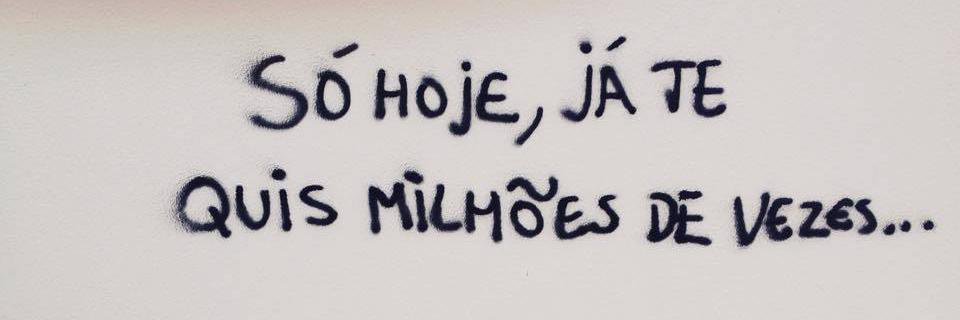 SÓ HOJE, JÁ TE
QUIS MILHÕES DE VEZES...